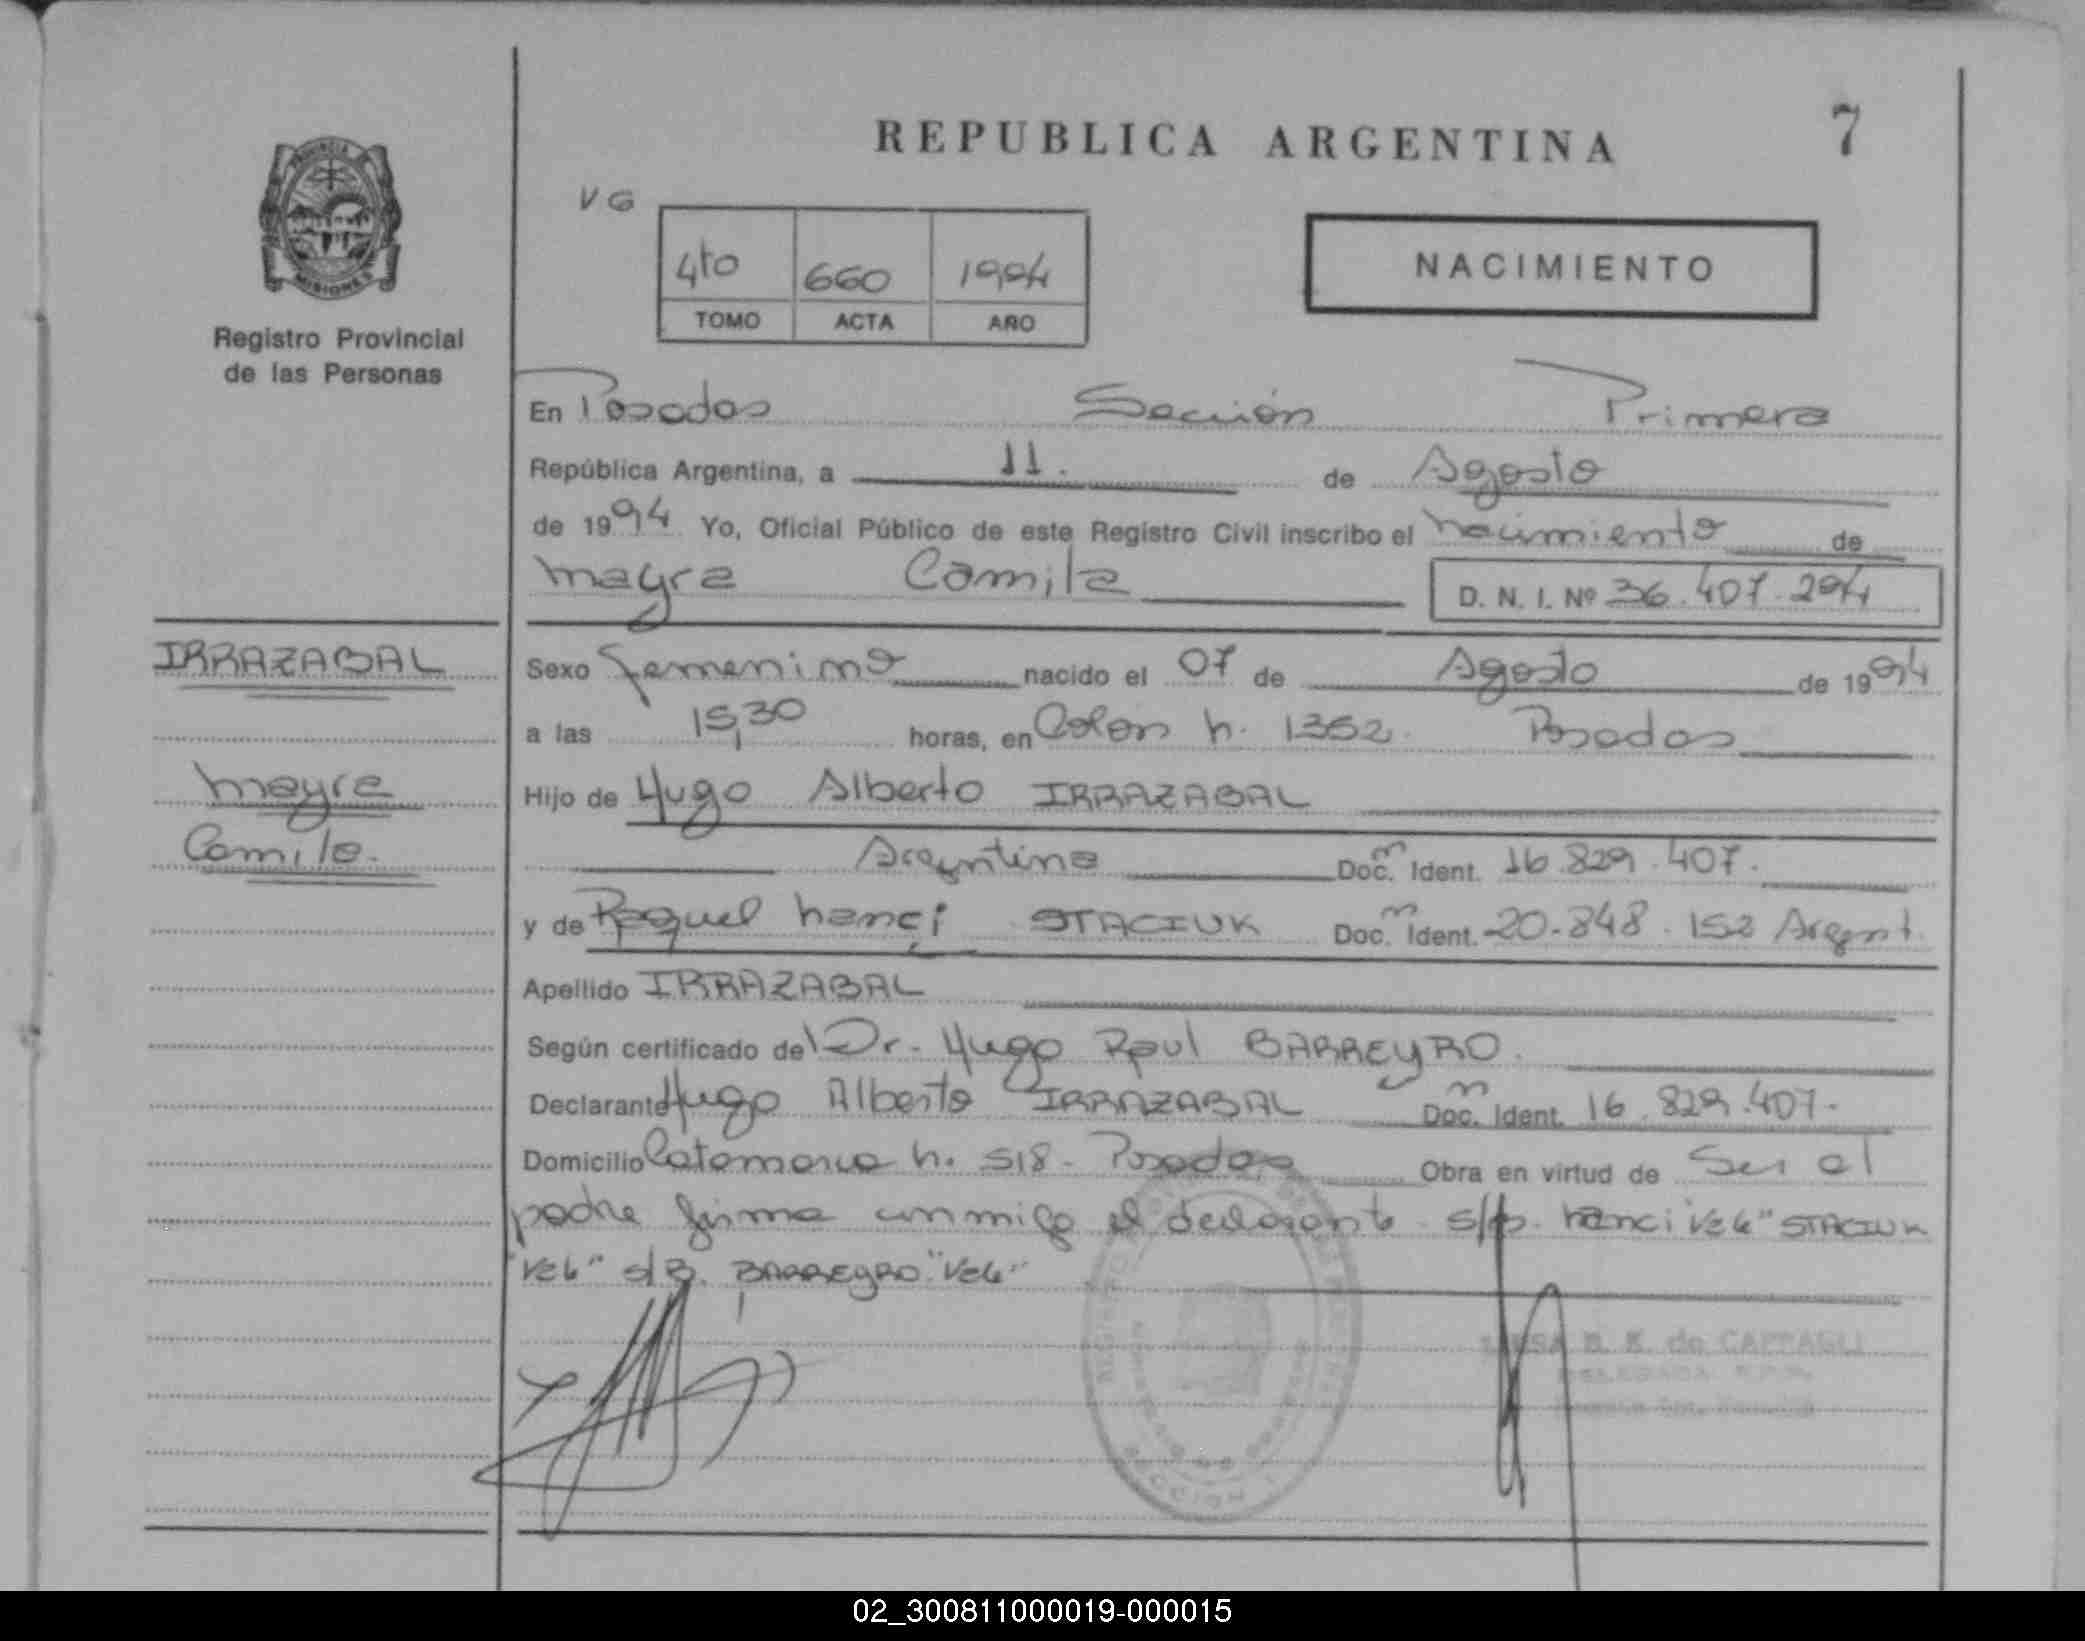 REPUBLICA ARGENTINA
7
PROVINCIA DE
MISIONES
Registro Provincial
de las Personas
VG
4to 660 1994
TOMO ACTA AÑO
NACIMIENTO
En Posadas Sección Primera
República Argentina, a 11. de Agosto
de 1994 Yo, Oficial Público de este Registro Civil inscribo el nacimiento de
Mayra Camila
D. N. I. Nº 36.407.294
IRRAZABAL
Mayra
Camila.
Sexo femenino nacido el 07 de Agosto de 1994
a las 15,30 horas, en Colon n. 1352. Posadas
Hijo de Hugo Alberto IRRAZABAL
Argentino Doc. m Ident. 16.829.407.
y de Raquel Nanci STACIUK Doc. m Ident. 20.848.152 Argent.
Apellido IRRAZABAL
Según certificado de Dr. Hugo Raul BARREYRO.
Declarante Hugo Alberto IRRAZABAL Doc. m Ident. 16.829.407.
Domicilio Catamarca n. 518 - Posadas Obra en virtud de Ser el
padre firma conmigo el declarante. s/b. Nanci "Vale" STACIUK
"Vale" s/B. BARREYRO. "Vale"
de CAPPAGLI
SECCION 1
02_300811000019-000015